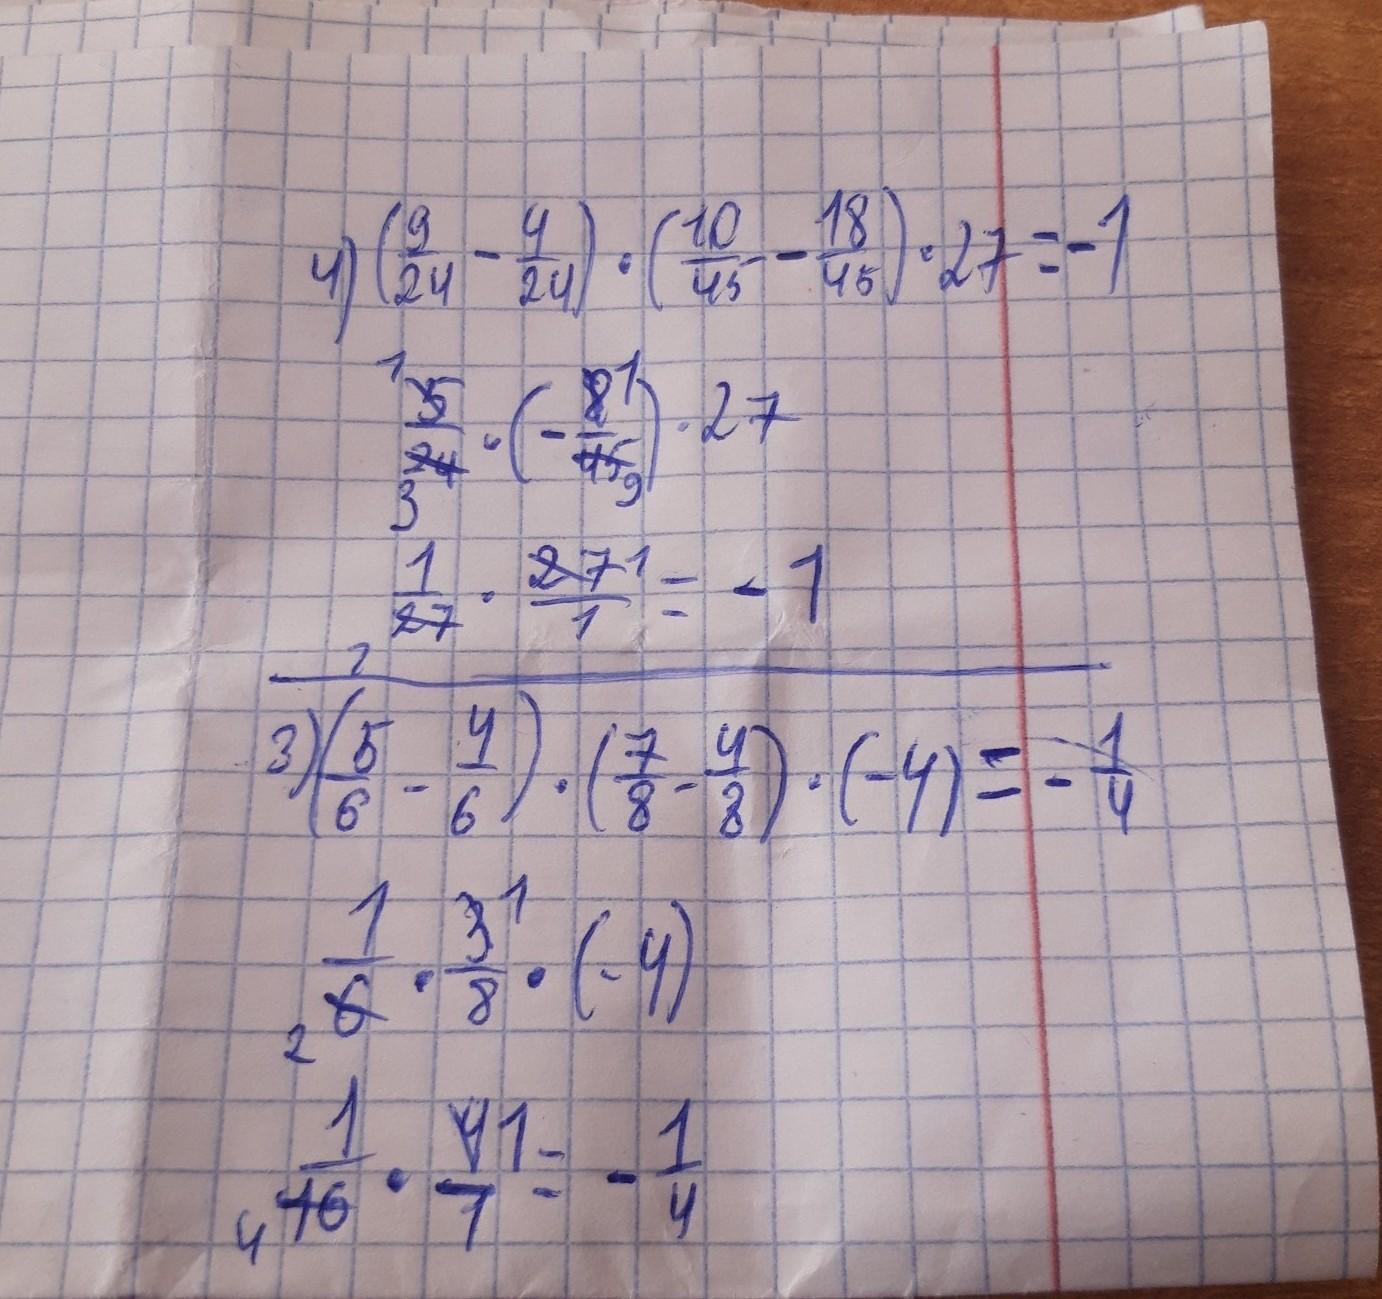 4) (9/24 - 4/24) · (10/45 - 18/45) · 27 = -1
1 5/24 3 · (- 8 1/45 9) · 27
1/27 · 27 1/1 = - 1
1
3) (5/6 - 4/6) · (7/8 - 4/8) · (-4) = - 1/4
1/6 2 · 3 1/8 · (-4)
1/16 4 · 4 1/1 = - 1/4